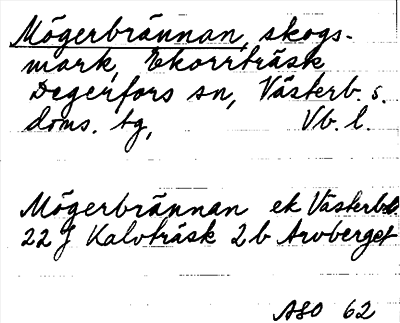 Mögerbrännan, skogs-
mark, Ekorrträsk
Degerfors sn, Västerb. s.
doms. tg, Vb. l.
Mögerbrännan ek Västerb
22 J Kalvträsk 2b Arvberget
ASO 62